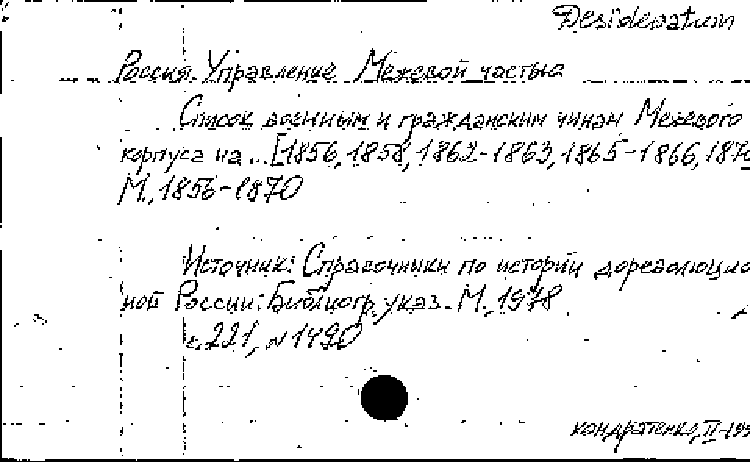 Desideratum
Россия. Управление Межевой частью
Список военным и гражданским чинам Межевого
корпуса на...[1856, 1858, 1862-1863, 1865-1866, 1870
М., 1856-1870
Источник: Справочники по истории дореволюцио
ной России: Библиогр. указ. М., 1978
с. 221, N 1490
Кондратенко, II-199